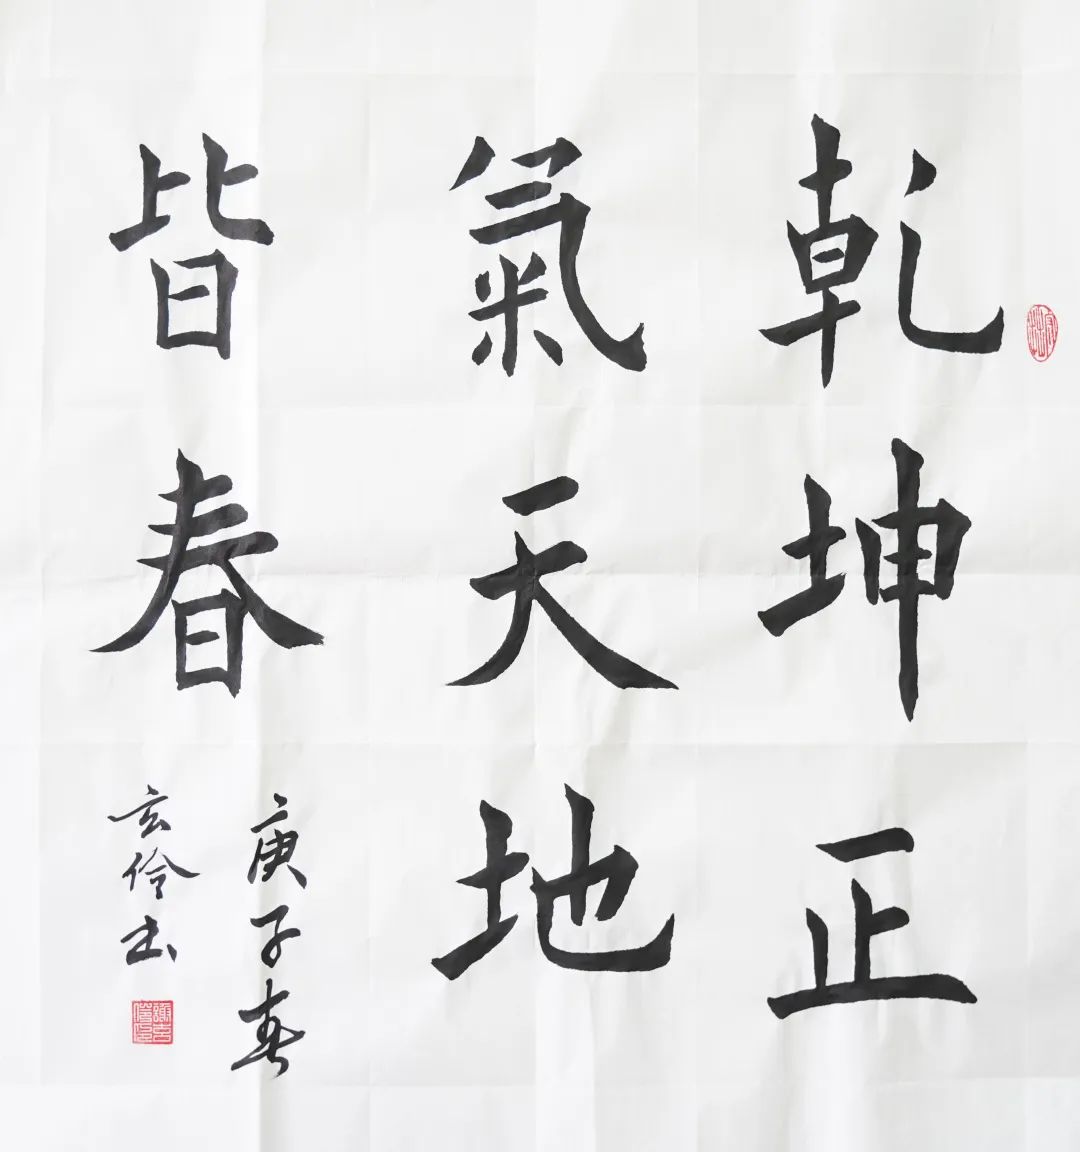 乾坤正
氣天地
皆春
庚子春
玄伶书